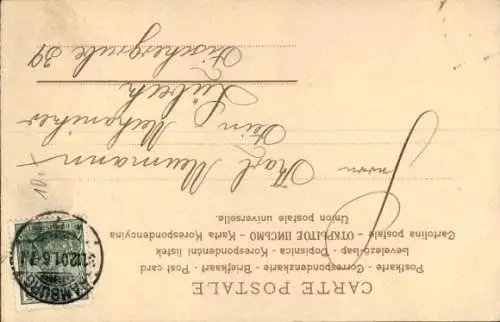 CARTE POSTALE
Postkarte - Correspondenzkarte - Briefkaart - Post card
bevelező-lap - Dopisnica - Korespondenční lístek
Cartolina postale - ОТКРЫТОЕ ПИСЬМО - Karta Korespondencyjna
Union postale universelle.
Herrn
Karl Neumann
Fein Mechaniker
Lübeck
Fischergrube 39
HAMBURG
12.01.6-7